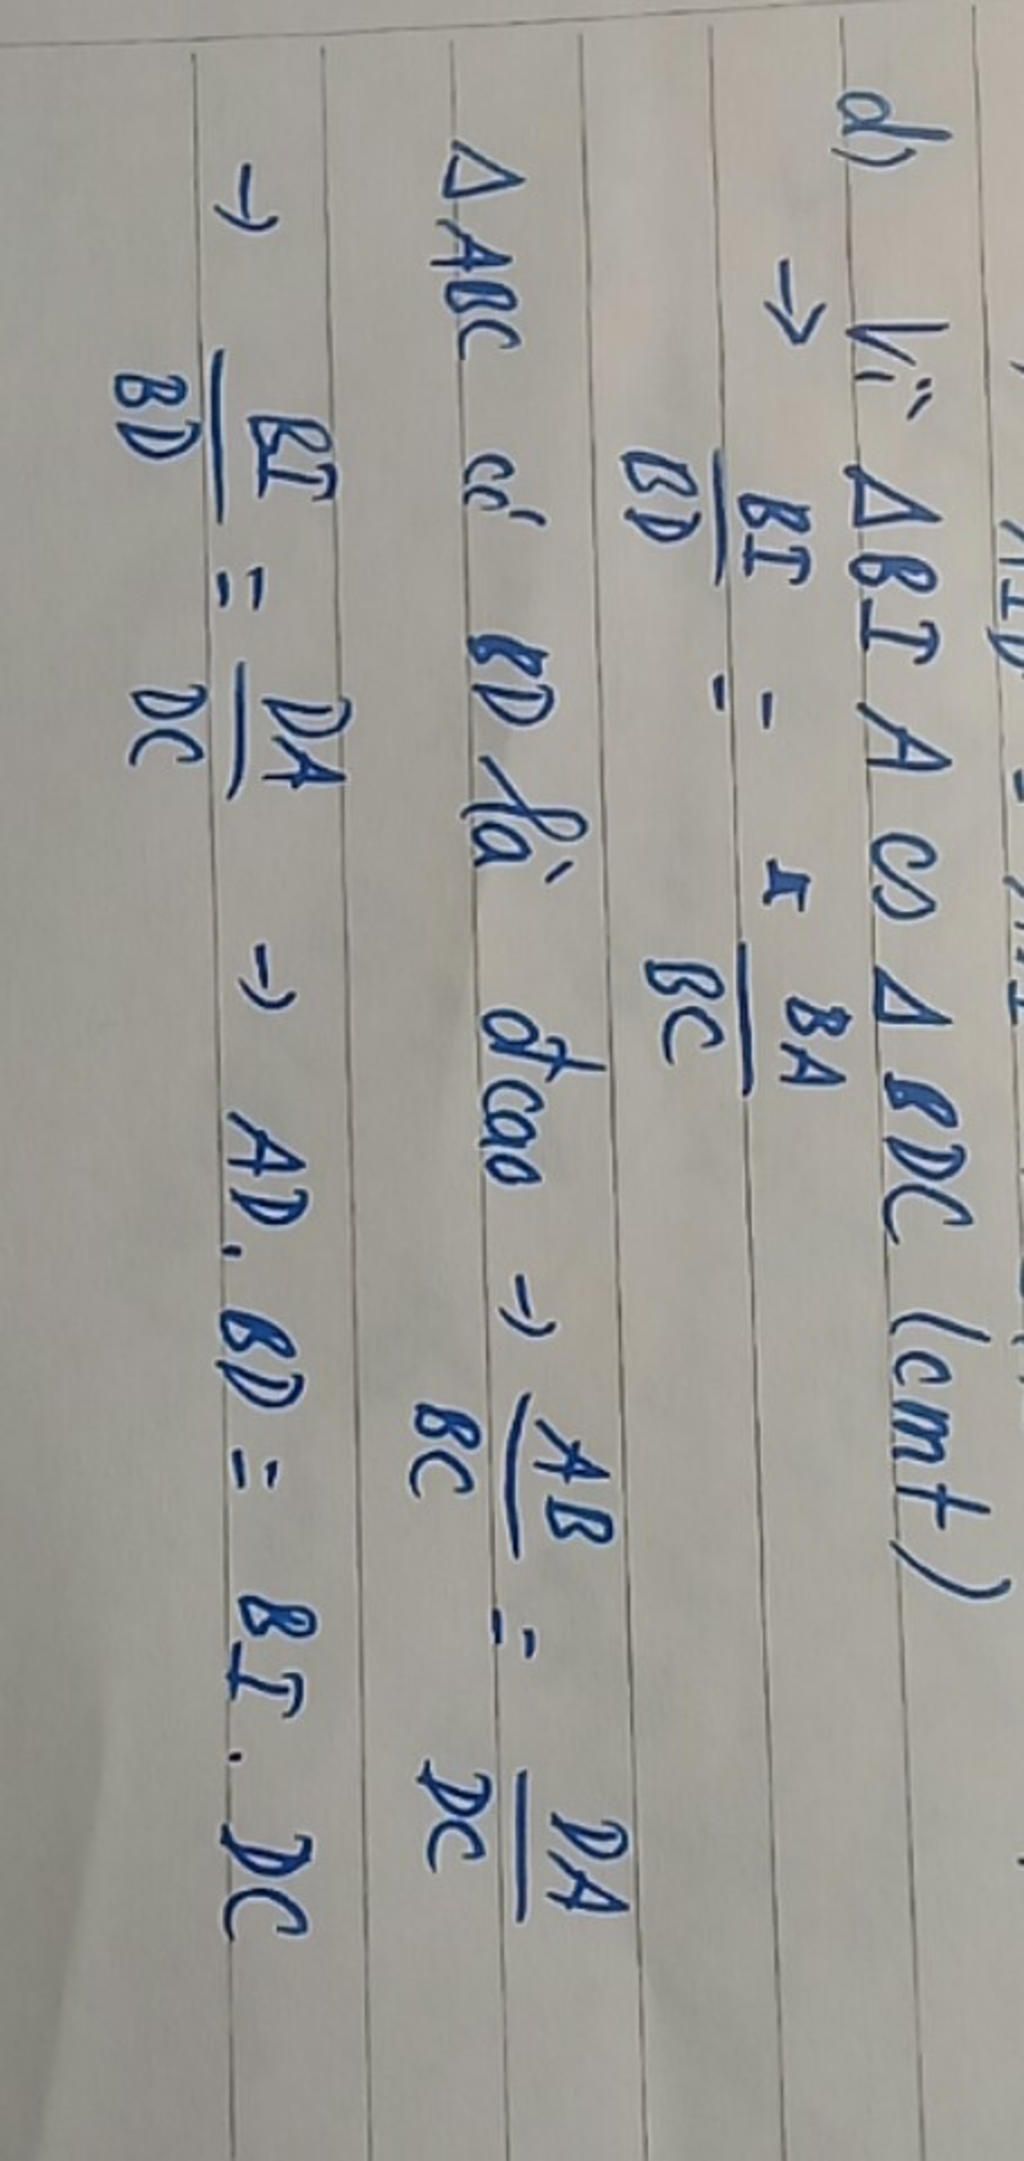 d) Vì Δ BIA ∽ Δ BDC (cmt)
→ BI/BD = BA/BC
Δ ABC có BD là đcao → AB/BC = DA/DC
→ BI/BD = DA/DC → AD. BD = BI. DC